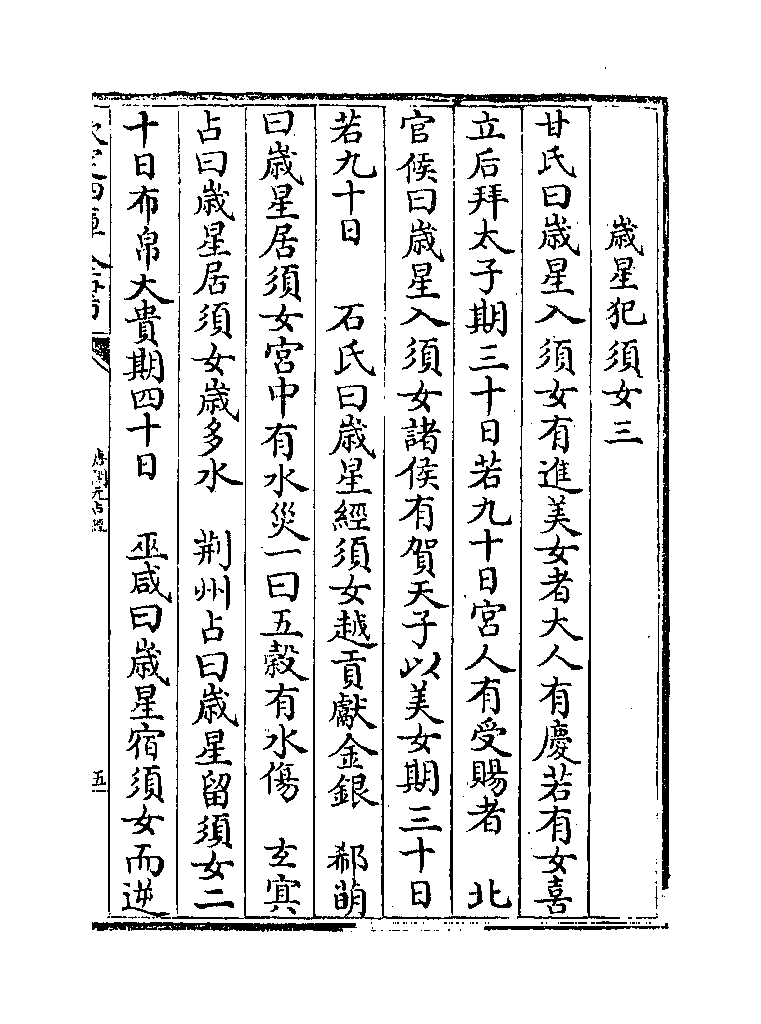 歲星犯須女三
甘氏曰歲星入須女有進美女者大人有慶若有女喜
立后拜太子期三十日若九十日宮人有受賜者　北
官候曰歲星入須女諸侯有賀天子以美女期三十日
若九十日　石氏曰歲星經須女越貢獻金銀　郗萌
曰歲星居須女宮中有水災一曰五穀有水傷　玄冥
占曰歲星居須女歲多水　荆州占曰歲星留須女二
十日布帛大貴期四十日　巫咸曰歲星宿須女而逆
欽定四庫全書
唐開元占經
五